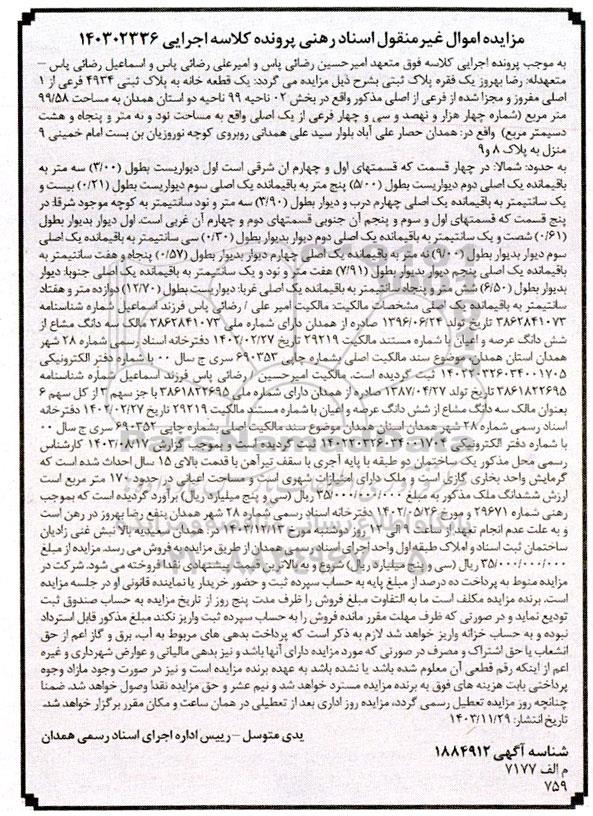 مزایده اموال غیرمنقول اسناد رهنی پرونده کلاسه اجرایی ۱۴۰۳۰۲۳۳۶
به موجب پرونده اجرایی کلاسه فوق متعهد امیرحسین رضائی پاس و امیرعلی رضائی پاس و اسماعیل رضائی پاس –
متعهدله: رضا بهروز یک فقره پلاک ثبتی بشرح ذیل مزایده می گردد: یک قطعه خانه به پلاک ثبتی ۴۹۳۴ فرعی از ۱
اصلی مفروز و مجزا شده از فرعی از اصلی مذکور واقع در بخش ۰۲ ناحیه ۹۹ ناحیه دو استان همدان به مساحت ۹۹/۵۸
متر مربع (شماره چهار هزار و نهصد و سی و چهار فرعی از یک اصلی واقع به مساحت نود و نه متر و پنجاه و هشت
دسیمتر مربع) واقع در: همدان حصار علی آباد بلوار سید علی همدانی روبروی کوچه نوروزیان بن بست امام خمینی ۹
منزل به پلاک ۸ و۹
به حدود: شمالا: در چهار قسمت که قسمتهای اول و چهارم ان شرقی است اول دیواریست بطول (۳/۰۰) سه متر به
باقیمانده یک اصلی دوم دیواریست بطول (۵/۰۰) پنج متر به باقیمانده یک اصلی سوم دیواریست بطول (۰/۲۱) بیست و
یک سانتیمتر به باقیمانده یک اصلی چهارم درب و دیوار بطول (۳/۹۰) سه متر و نود سانتیمتر به کوچه موجود شرقا: در
پنج قسمت که قسمتهای اول و سوم و پنجم آن جنوبی قسمتهای دوم و چهارم آن غربی است. اول دیوار بدیوار بطول
(۰/۶۱) شصت و یک سانتیمتر به باقیمانده یک اصلی دوم دیوار بدیوار بطول (۰/۳۰) سی سانتیمتر به باقیمانده یک اصلی
سوم دیوار بدیوار بطول (۹/۰۰) نه متر به باقیمانده یک اصلی چهارم دیوار بدیوار بطول (۰/۵۷) پنجاه و هفت سانتیمتر به
باقیمانده یک اصلی پنجم دیوار بدیوار بطول (۷/۹۱) هفت متر و نود و یک سانتیمتر به باقیمانده یک اصلی جنوبا: دیوار
بدیوار بطول (۶/۵۰) شش متر و پنجاه سانتیمتر به باقیمانده یک اصلی غربا: دیواریست بطول (۱۲/۷۰) دوازده متر و هفتاد
سانتیمتر به باقیمانده یک اصلی مشخصات مالکیت: مالکیت امیر علی / رضائی پاس فرزند اسماعیل شماره شناسنامه
۳۸۶۲۸۴۱۰۷۳ تاریخ تولد ۱۳۹۶/۰۶/۲۴ صادره از همدان دارای شماره ملی ۳۸۶۲۸۴۱۰۷۳ مالک سه دانگ مشاع از
شش دانگ عرصه و اعیان با شماره مستند مالکیت ۲۹۲۱۹ تاریخ ۱۴۰۲/۰۲/۲۷ دفترخانه اسناد رسمی شماره ۲۸ شهر
همدان استان همدان موضوع سند مالکیت اصلی بشماره چاپی ۶۹۰۳۵۳ سری ج سال ۰۰ با شماره دفتر الکترونیکی
۱۴۰۲۲۰۳۲۶۰۳۴۰۰۱۷۰۵ ثبت گردیده است. مالکیت امیرحسین / رضائی پاس فرزند اسماعیل شماره شناسنامه
۳۸۶۱۸۲۲۶۹۵ تاریخ تولد ۱۳۸۷/۰۴/۲۷ صادره از همدان دارای شماره ملی ۳۸۶۱۸۲۲۶۹۵ با جز سهم ۳ از کل سهم ۶
بعنوان مالک سه دانگ مشاع از شش دانگ عرصه و اعیان با شماره مستند مالکیت ۲۹۲۱۹ تاریخ ۱۴۰۲/۰۲/۲۷ دفترخانه
اسناد رسمی شماره ۲۸ شهر همدان استان همدان موضوع سند مالکیت اصلی بشماره چاپی ۶۹۰۳۵۲ سری ج سال ۰۰
با شماره دفتر الکترونیکی ۱۴۰۲۲۰۳۲۶۰۳۴۰۰۱۷۰۴ ثبت گردیده است. و بموجب گزارش ۱۴۰۳/۰۸/۱۷ کارشناس
رسمی محل مذکور یک ساختمان دو طبقه با پایه آجری با سقف تیرآهن با قدمت بالای ۱۵ سال احداث شده است که
گرمایش واحد بخاری گازی است و ملک دارای امتیازات شهری است و مساحت اعیانی در حدود ۱۷۰ متر مربع است
ارزش ششدانگ ملک مذکور به مبلغ ۳۵/۰۰۰/۰۰۰/۰۰۰ ریال (سی و پنج میلیارد ریال) برآورد گردیده است که بموجب
رهنی شماره ۲۹۶۷۱ و مورخ ۱۴۰۲/۰۵/۲۶ دفترخانه اسناد رسمی شماره ۲۸ شهر همدان بنفع رضا بهروز در رهن است
و به علت عدم انجام تعهد از ساعت ۹ الی ۱۲ روز دوشنبه مورخ ۱۴۰۳/۱۲/۱۳ در: همدان سعیدیه بالا نبش غنی زادیان
ساختمان ثبت اسناد و املاک طبقه اول واحد اجرای اسناد رسمی همدان از طریق مزایده به فروش می رسد. مزایده از مبلغ
۳۵/۰۰۰/۰۰۰/۰۰۰ ریال (سی و پنج میلیارد ریال) شروع و به بالاترین قیمت پیشنهادی نقدا فروخته می شود. شرکت در
مزایده منوط به پرداخت ده درصد از مبلغ پایه به حساب سپرده ثبت و حضور خریدار یا نماینده قانونی او در جلسه مزایده
است. برنده مزایده مکلف است ما به التفاوت مبلغ فروش را ظرف مدت پنج روز از تاریخ مزایده به حساب صندوق ثبت
تودیع نماید و در صورتی که ظرف مهلت مقرر مانده فروش را به حساب سپرده ثبت واریز نکند مبلغ مذکور قابل استرداد
نبوده و به حساب خزانه واریز خواهد شد. لازم به ذکر است که پرداخت بدهی های مربوط به آب، برق و گاز اعم از حق
انشعاب یا حق اشتراک و مصرف در صورتی که مورد مزایده دارای آنها باشد و نیز بدهی مالیاتی و عوارض شهرداری و غیره
اعم از اینکه رقم قطعی آن معلوم شده باشد یا نشده باشد به عهده برنده مزایده است و نیز در صورت وجود مازاد وجوه
پرداختی بابت هزینه های فوق به برنده مزایده مسترد خواهد شد و نیم عشر و حق مزایده نقدا وصول خواهد شد. ضمنا
چنانچه روز مزایده تعطیل رسمی گردد، مزایده روز اداری بعد از تعطیلی در همان ساعت و مکان مقرر برگزار خواهد شد.
تاریخ انتشار: ۱۴۰۳/۱۱/۲۹
یدی متوسل – رییس اداره اجرای اسناد رسمی همدان
شناسه آگهی ۱۸۸۴۹۱۲
م الف ۷۱۷۷
۷۵۹